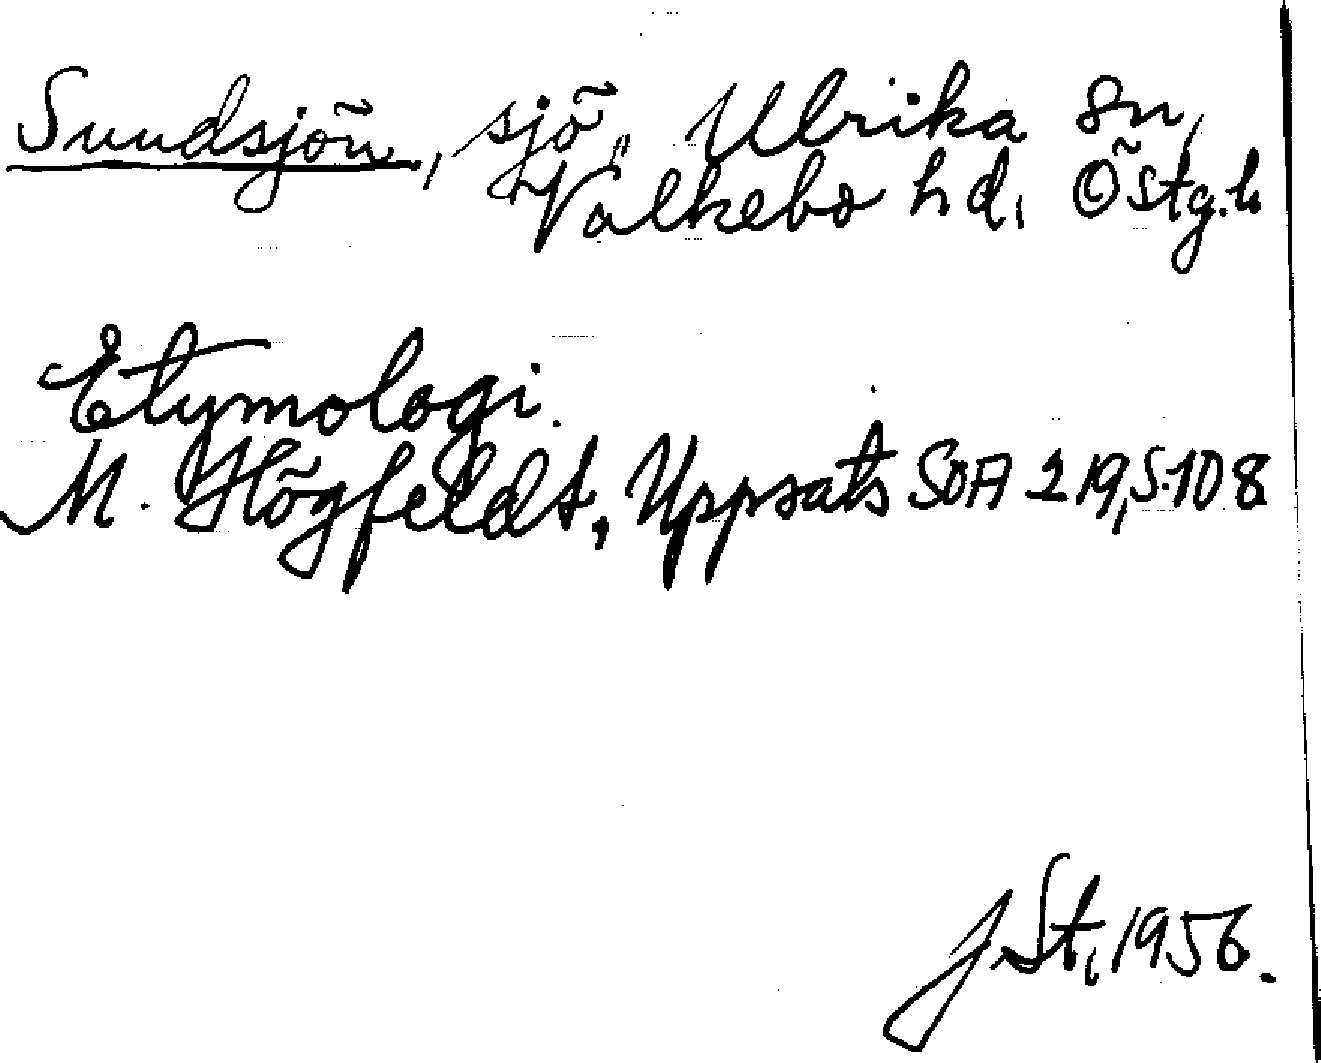 Sundsjön, sjö, Ulrika sn,
Valkebo hd, Östg.l.
Etymologi.
M. Högfeldt, Uppsats SOA 219, S. 108
J St, 1956.